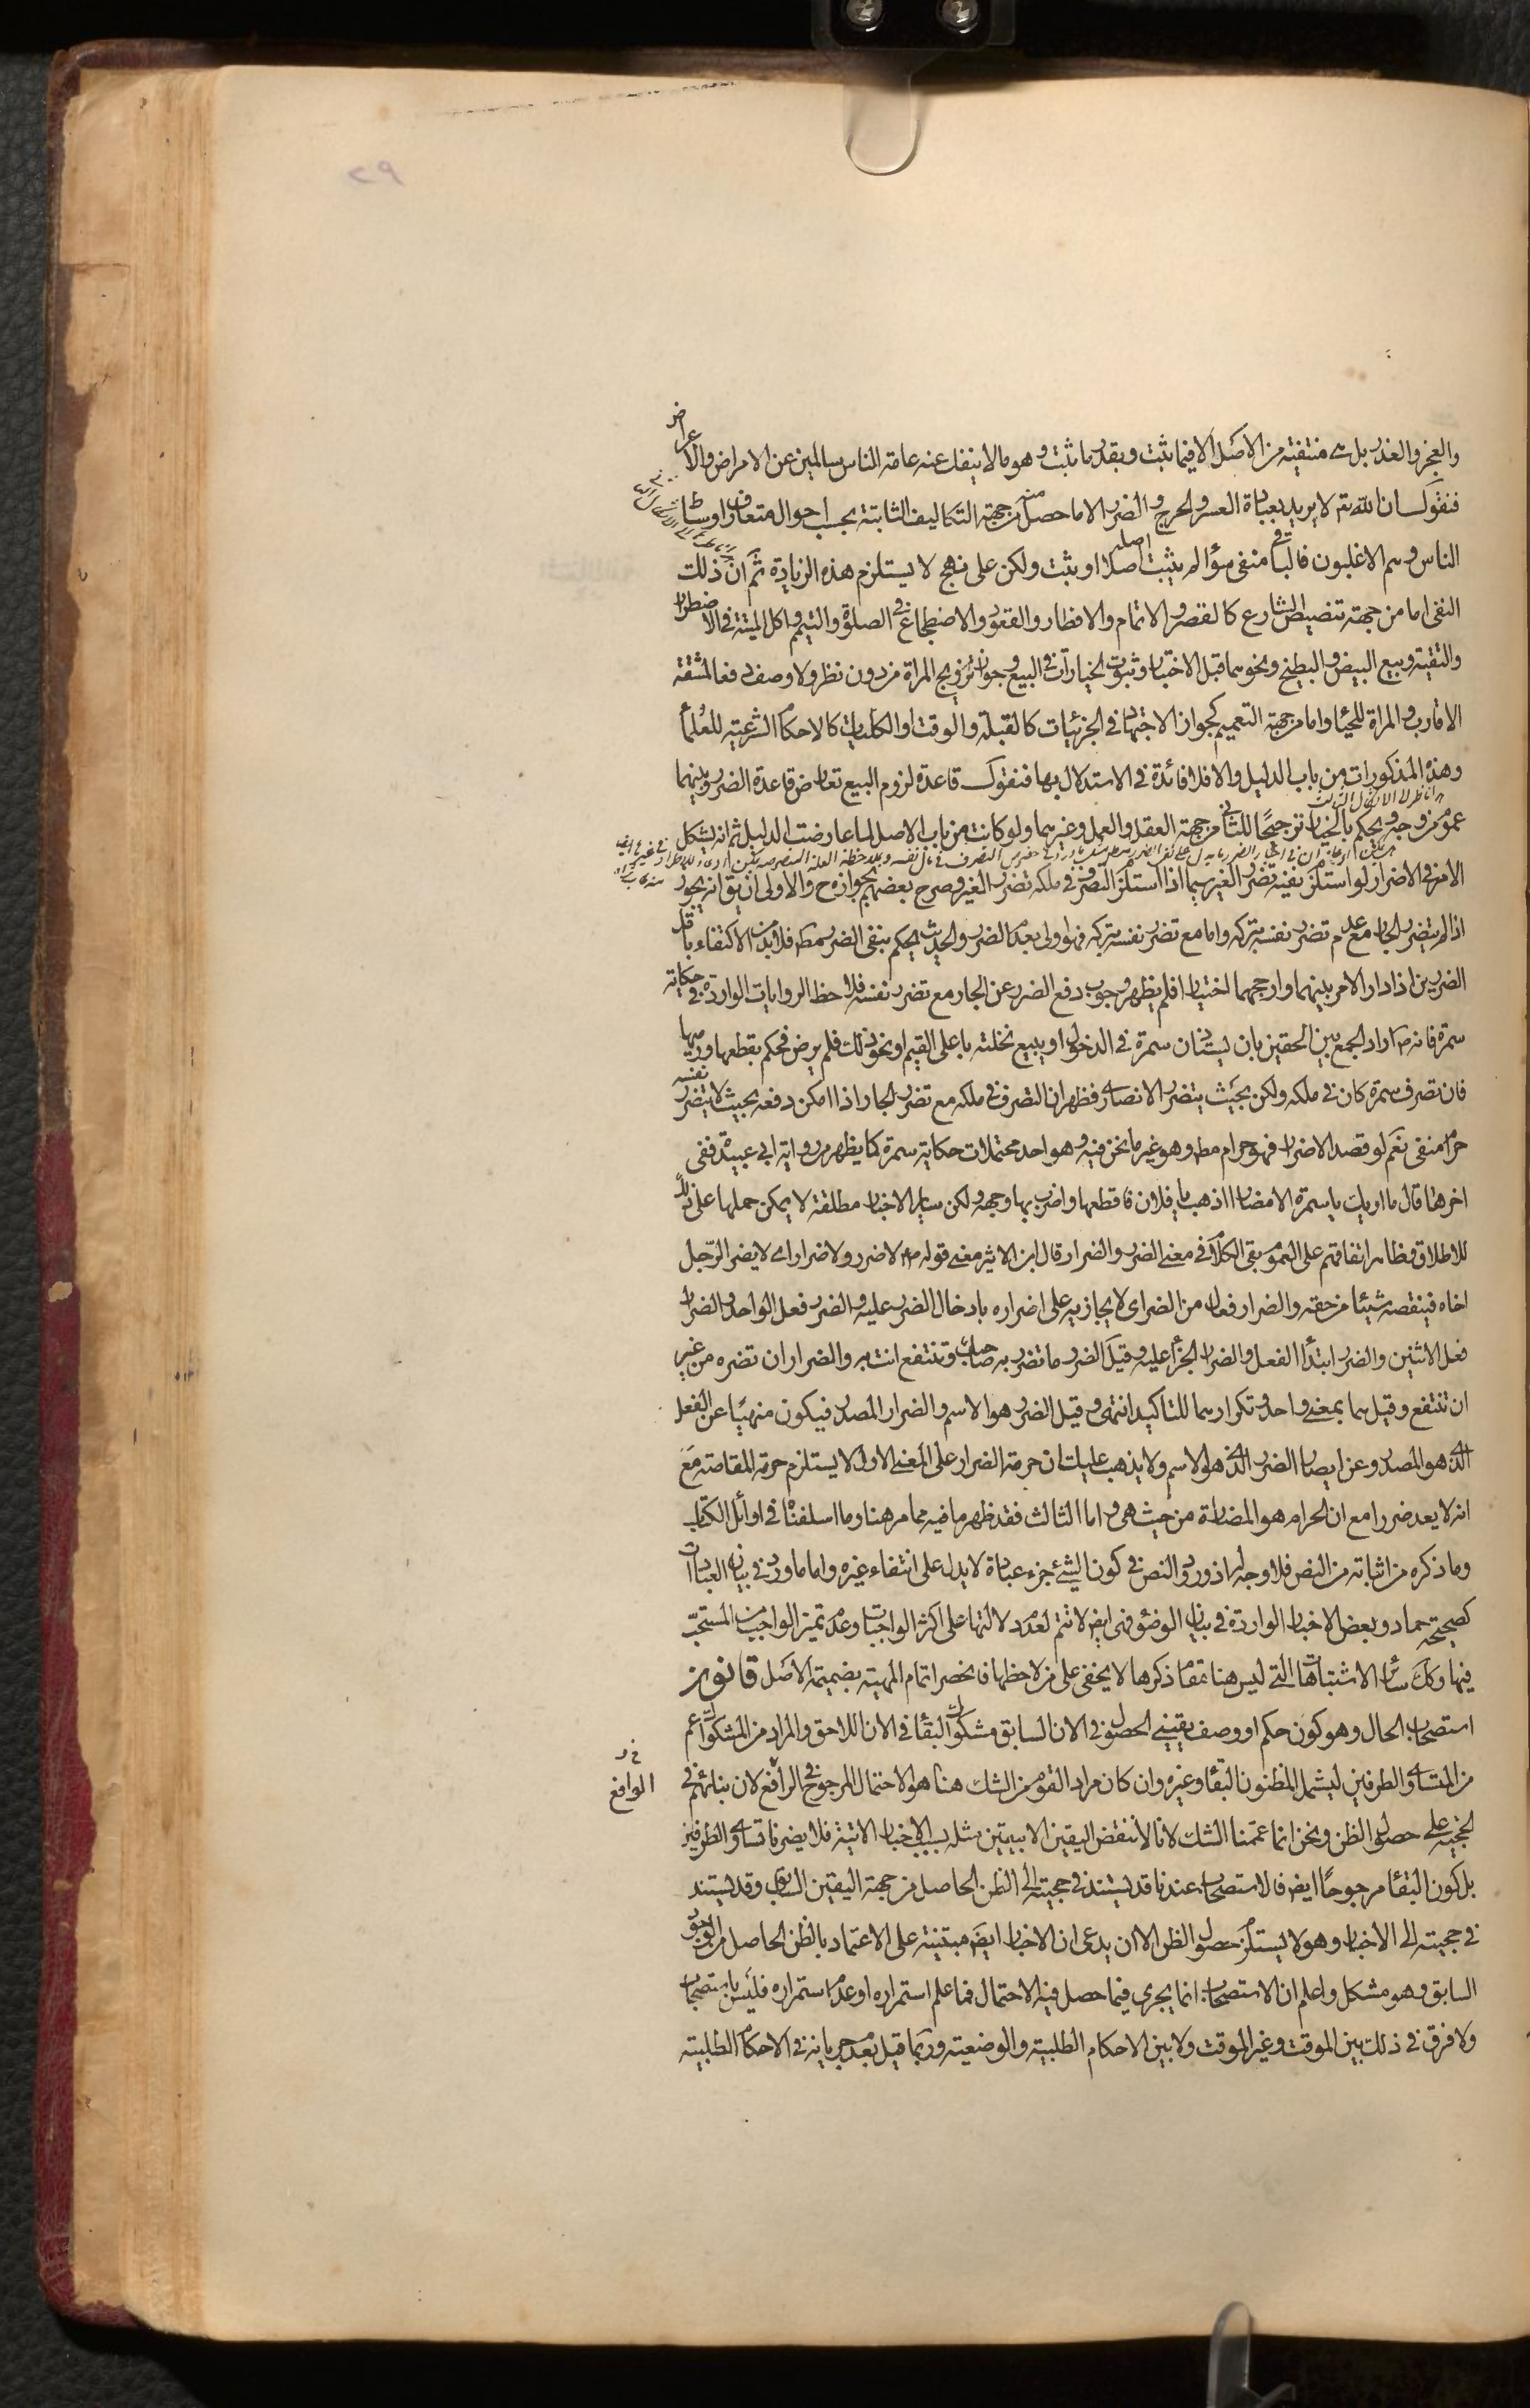 والعجز والعذر بل هي منتفية من الاصل الا فيما ثبت وبقدر ما ثبت وهو ما لا ينفك عنه عامة الناس سالمين عن الامراض والاعراض
فنقول ان الله تم لا يريد بعباده العسر والحرج والضرر الا ما حصل من جهة التكاليف الثابتة بحسب احوال متعارف اوساط
الناس وهم الاغلبون فالباقي منفي سواء لم يثبت اصله اصلا او ثبت ولكن على نهج لا يستلزم هذه الزيادة ثم ان ذلك
النفي اما من جهة تنصيص الشارع كالقصر والاتمام والافطار والقعود والاضطجاع في الصلوة والتيمم واكل الميتة في الاضطرار
والتقية وبيع البيض والبطيخ ونحوهما قبل الاختبار وثبوت الخيارات في البيع وجواز تزويج المراة من دون نظر ولا وصف دفعا لمشقة
الاقارب والمراة للحياء واما من جهة التعميم كجواز الاجتهاد في الجزئيات كالقبلة والوقت او الكليات كالاحكام الشرعية للعلماء
وهذه المذكورات من باب الدليل والا فلا فائدة في الاستدلال بها فنقول قاعدة لزوم البيع تعارض قاعدة الضرر وبينهما
عموم من وجه ويحكم بالخيار ترجيحا للثاني من جهة العقل والعمل وغيرهما ولو كانت من باب الاصل لما عارضت الدليل ثم انه يشكل
الامر في الاضرار لو استلزم نفيه تضرر الغير سيما اذا استلزم التصرف في ملكه تضرر الغير وصرح بعضهم بجوازه ح والاولى ان يق انه يجوز
اذا لم يتضرر الجار مع عدم تضرر نفسه بتركه واما مع تضرر نفسه بتركه فهو اولى بعدم الضرر والحديث يحكم بنفي الضرر مطم فلا بد من الاكتفاء باقل
الضررين اذا دار الامر بينهما وارجحهما اختيارا فلم يظهر وجوب دفع الضرر عن الجار مع تضرر نفسه فلاحظ الروايات الواردة في حكاية
سمرة فانه ص اراد الجمع بين الحقين بان يستاذن سمرة في الدخول او يبيع نخلته باعلى القيم او نحو ذلك فلم يرض فحكم بقطعها ورميها
فان تصرف سمرة كان في ملكه ولكن بحيث يتضرر الانصاري فظهر ان التصرف في ملكه مع تضرر الجار اذا امكن دفعه بحيث لا يتضرر نفسه
حرام منفي نعم لو قصد الاضرار فهو حرام مطم وهو غير ما نحن فيه وهو احد محتملات حكاية سمرة كما يظهر من رواية ابي عبيدة ففي
اخرها قال ما اريك يا سمرة الا مضارا اذهب يا فلان فاقطعها واضرب بها وجهه ولكن ساير الاخبار مطلقة لا يمكن حملها على ذلك
للاطلاق وظاهر اتفاقهم على العموم بقي الكلام في معنى الضرر والضرار قال ابن الاثير معنى قوله ص لا ضرر ولا ضرار اي لا يضر الرجل
اخاه فينقصه شيئا من حقه والضرار فعال من الضر اي لا يجازيه على اضراره بادخال الضرر عليه والضرر فعل الواحد والضرار
فعل الاثنين والضرر ابتداء الفعل والضرار الجزاء عليه وقيل الضرر ما تضر به صاحبك وتنتفع انت به والضرار ان تضره من غير
ان تنتفع وقيل هما بمعنى واحد وتكرارهما للتاكيد انتهى وقيل الضرر هو الاسم والضرار المصدر فيكون منهيا عن الفعل
الذي هو المصدر وعن ايصال الضرر الذي هو الاسم ولا يذهب عليك ان حرمة الضرار على المعنى الاول لا يستلزم حرمة المقاصة مع
انه لا يعد ضررا مع ان الحرام هو المضارة من حيث هي واما الثالث فقد ظهر ما فيه مما مر هنا وما اسلفناه في اوائل الكتاب
وما ذكره من اثباته من النص فلا وجه له اذ ورود النص في كون الشيء جزء عبادة لا يدل على انتفاء غيره واما ما ورد في بيان العبادات
كصحيحة حماد وبعض الاخبار الواردة في بيان الوضوء فهي ايض لا تتم لعدم دلالتها على اكثر الواجبات وعدم تميز الواجب من المستحب
فيها وكل سائر الاشتباهات التي ليس هنا مقام ذكرها لا يخفى على من لاحظها فانحصر اتمام المهية بضميمة الاصل قانون
استصحاب الحال وهو كون حكم او وصف يقيني الحصول في الان السابق مشكوك البقاء في الان اللاحق والمراد من المشكوك اعم
من المتساوي الطرفين ليشمل المظنون البقاء وغيره وان كان مراد القوم من الشك هنا هو الاحتمال المرجوح في الرافع لان بنائهم في
الواقع
الحجية على حصول الظن ونحن انما عممنا الشك لانا لا ننقض اليقين الا بيقين مثله بسبب الاخبار الاتية فلا يضرنا تساوي الطرفين
بل كون البقاء مرجوحا ايض فالاستصحاب عندنا قد يستند في حجيته الى الظن الحاصل من جهة اليقين السابق وقد يستند
في حجيته الى الاخبار وهو لا يستلزم حصول الظن الا ان يدعى ان الاخبار ايض مبتنية على الاعتماد بالظن الحاصل من الوجود
السابق وهو مشكل واعلم ان الاستصحاب انما يجري فيما حصل فيه الاحتمال فما علم استمراره او عدم استمراره فليس باستصحاب
ولا فرق في ذلك بين الموقت وغير الموقت ولا بين الاحكام الطلبية والوضعية وربما قيل بعدم جريانه في الاحكام الطلبية